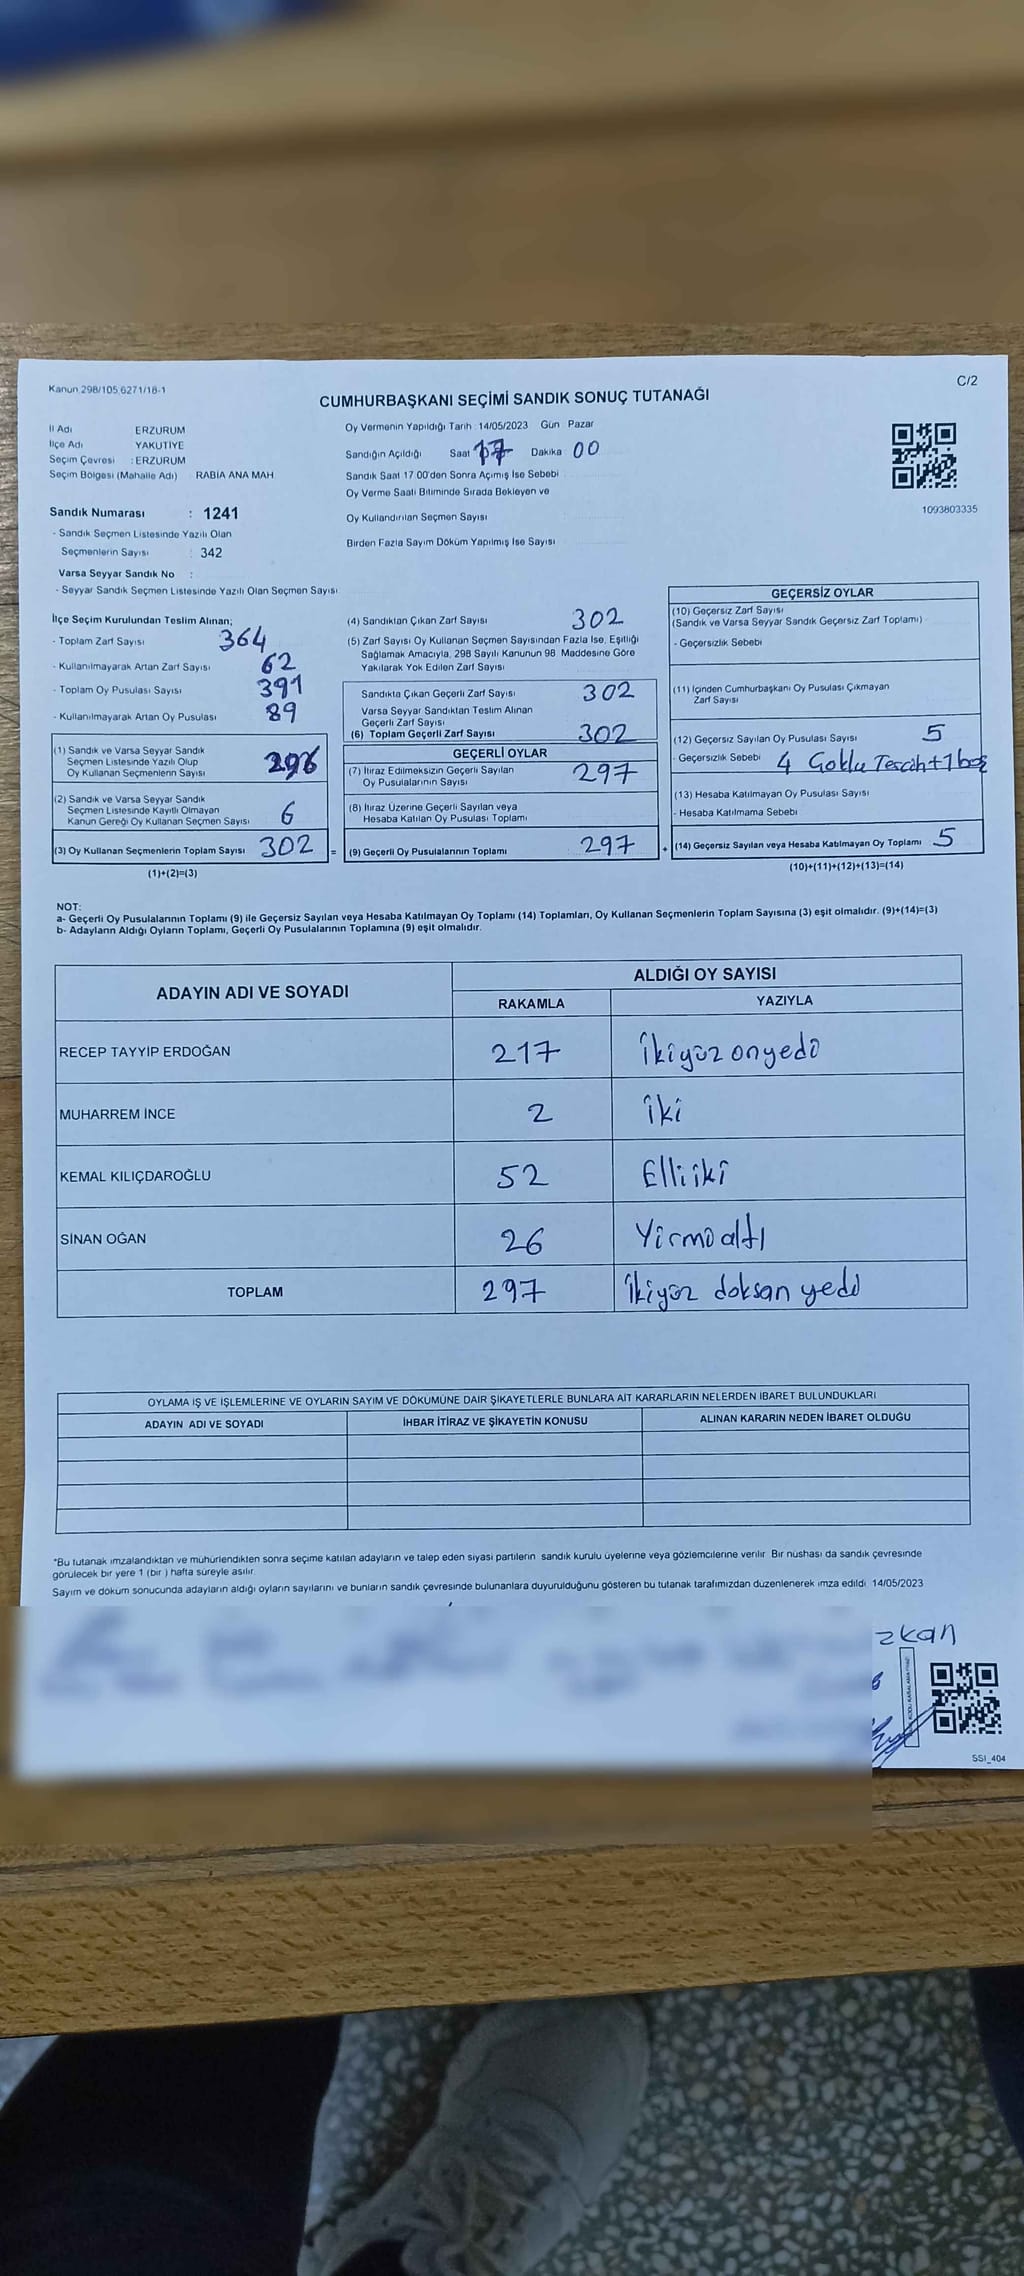 Kanun 298/105 6271/18-1
C/2
CUMHURBAŞKANI SEÇİMİ SANDIK SONUÇ TUTANAĞI
İl Adı ERZURUM
İlçe Adı YAKUTİYE
Seçim Çevresi : ERZURUM
Seçim Bölgesi (Mahalle Adı) RABİA ANA MAH
Sandık Numarası : 1241
- Sandık Seçmen Listesinde Yazılı Olan
Seçmenlerin Sayısı : 342
Varsa Seyyar Sandık No :
- Seyyar Sandık Seçmen Listesinde Yazılı Olan Seçmen Sayısı
Oy Vermenin Yapıldığı Tarih : 14/05/2023 Gün Pazar
Sandığın Açıldığı Saat 17 Dakika 00
Sandık Saat 17 00'den Sonra Açımış İse Sebebi
Oy Verme Saati Bitiminde Sırada Bekleyen ve
Oy Kullandırılan Seçmen Sayısı
Birden Fazla Sayım Döküm Yapılmış İse Sayısı
1093803335
İlçe Seçim Kurulundan Teslim Alınan;
- Toplam Zarf Sayısı 364
- Kullanılmayarak Artan Zarf Sayısı 62
- Toplam Oy Pusulası Sayısı 391
- Kullanılmayarak Artan Oy Pusulası 89
(1) Sandık ve Varsa Seyyar Sandık
Seçmen Listesinde Yazılı Olup
Oy Kullanan Seçmenlerin Sayısı 296
(2) Sandık ve Varsa Seyyar Sandık
Seçmen Listesinde Kayıtlı Olmayan
Kanun Gereği Oy Kullanan Seçmen Sayısı 6
(3) Oy Kullanan Seçmenlerin Toplam Sayısı 302 =
(1)+(2)=(3)
(4) Sandıktan Çıkan Zarf Sayısı 302
(5) Zarf Sayısı Oy Kullanan Seçmen Sayısından Fazla İse, Eşitliği
Sağlamak Amacıyla, 298 Sayılı Kanunun 98. Maddesine Göre
Yakılarak Yok Edilen Zarf Sayısı
Sandıkta Çıkan Geçerli Zarf Sayısı 302
Varsa Seyyar Sandıktan Teslim Alınan
Geçerli Zarf Sayısı
(6) Toplam Geçerli Zarf Sayısı 302
GEÇERLİ OYLAR
(7) İtiraz Edilmeksizin Geçerli Sayılan
Oy Pusulalarının Sayısı 297
(8) İtiraz Üzerine Geçerli Sayılan veya
Hesaba Katılan Oy Pusulası Toplamı
(9) Geçerli Oy Pusulalarının Toplamı 297 +
GEÇERSİZ OYLAR
(10) Geçersiz Zarf Sayısı
(Sandık ve Varsa Seyyar Sandık Geçersiz Zarf Toplamı)
- Geçersizlik Sebebi
(11) İçinden Cumhurbaşkanı Oy Pusulası Çıkmayan
Zarf Sayısı
(12) Geçersiz Sayılan Oy Pusulası Sayısı 5
- Geçersizlik Sebebi 4 Çoklu Tercih+1 boş
(13) Hesaba Katılmayan Oy Pusulası Sayısı
- Hesaba Katılmama Sebebi
(14) Geçersiz Sayılan veya Hesaba Katılmayan Oy Toplamı 5
(10)+(11)+(12)+(13)=(14)
NOT:
a- Geçerli Oy Pusulalarının Toplamı (9) ile Geçersiz Sayılan veya Hesaba Katılmayan Oy Toplamı (14) Toplamları, Oy Kullanan Seçmenlerin Toplam Sayısına (3) eşit olmalıdır. (9)+(14)=(3)
b- Adayların Aldığı Oyların Toplamı, Geçerli Oy Pusulalarının Toplamına (9) eşit olmalıdır.
ADAYIN ADI VE SOYADI ALDIĞI OY SAYISI
RAKAMLA YAZIYLA
RECEP TAYYİP ERDOĞAN 217 ikiyüz onyedi
MUHARREM İNCE 2 iki
KEMAL KILIÇDAROĞLU 52 Elliiki
SİNAN OĞAN 26 Yirmialtı
TOPLAM 297 ikiyüz doksan yedi
OYLAMA İŞ VE İŞLEMLERİNE VE OYLARIN SAYIM VE DÖKÜMÜNE DAİR ŞİKAYETLERLE BUNLARA AİT KARARLARIN NELERDEN İBARET BULUNDUKLARI
ADAYIN ADI VE SOYADI İHBAR İTİRAZ VE ŞİKAYETİN KONUSU ALINAN KARARIN NEDEN İBARET OLDUĞU
*Bu tutanak imzalandıktan ve mühürlendikten sonra seçime katılan adayların ve talep eden siyasi partilerin sandık kurulu üyelerine veya gözlemcilerine verilir Bir nüshası da sandık çevresinde
görülecek bir yere 1 (bir ) hafta süreyle asılır
Sayım ve döküm sonucunda adayların aldığı oyların sayılarını ve bunların sandık çevresinde bulunanlara duyurulduğunu gösteren bu tutanak tarafımızdan düzenlenerek imza edildi 14/05/2023
zkan
SSI_404